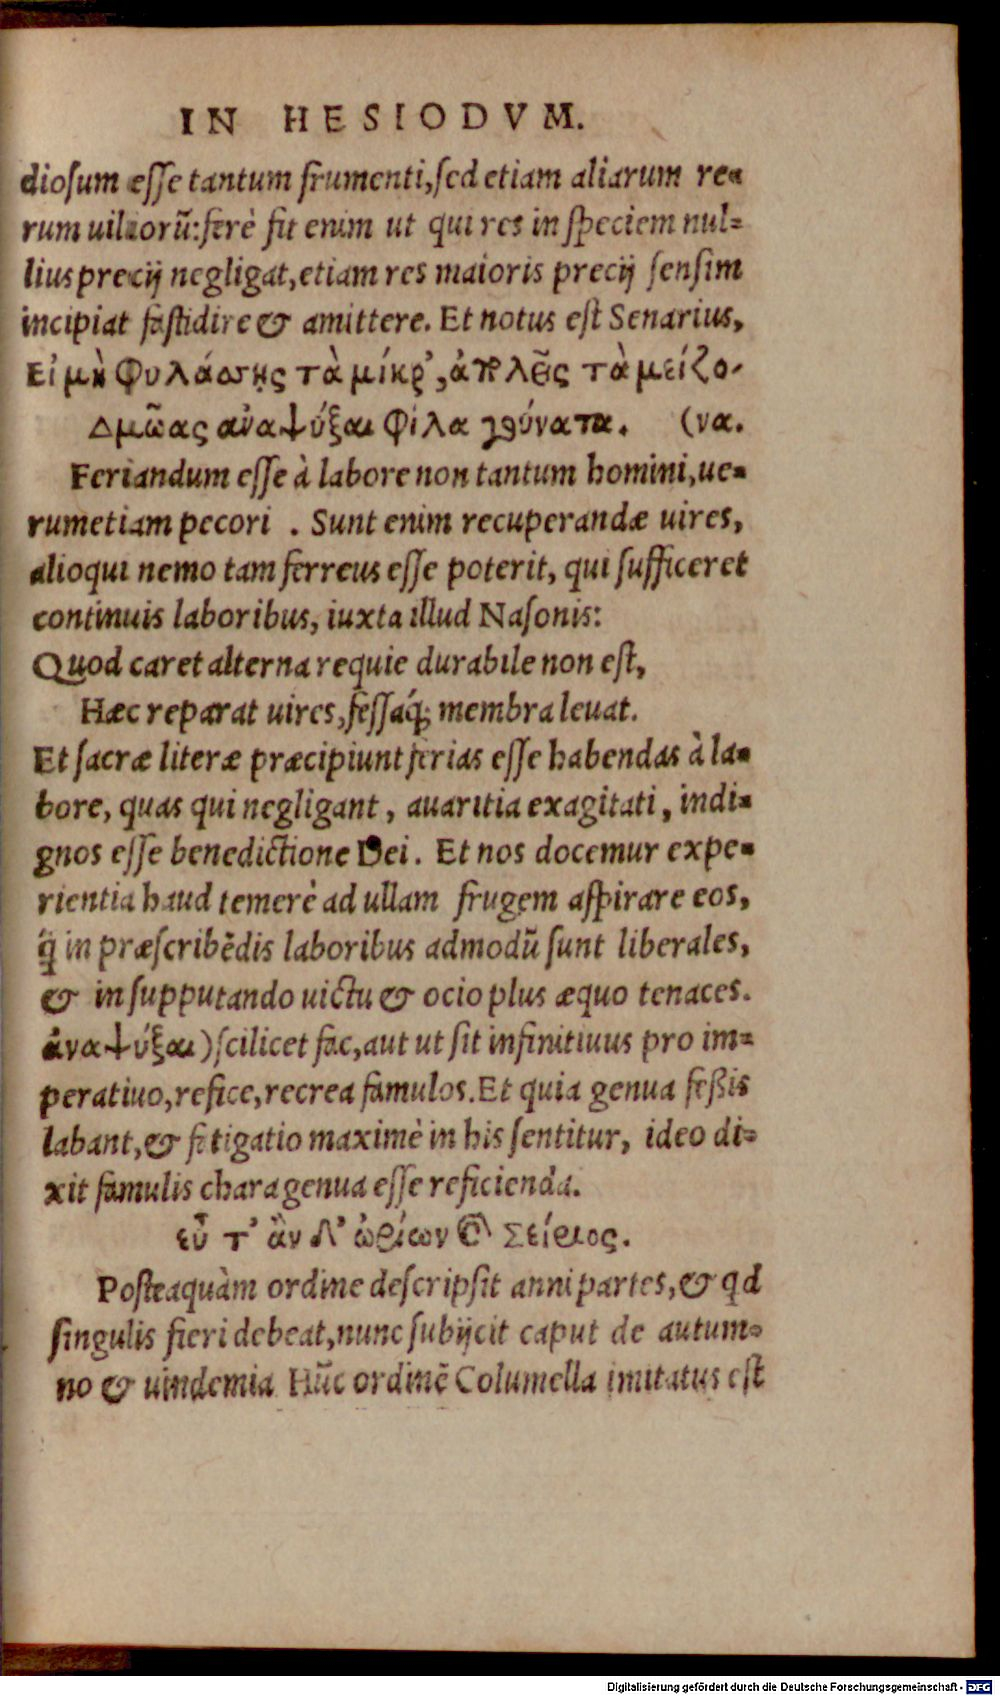 IN HESIODVM.
diosum esse tantum frumenti, sed etiam aliarum re-
rum uiliorũ: ferè fit enim ut qui res in speciem nul-
lius precij negligat, etiam res maioris precij sensim
incipiat fastidire & amittere. Et notus est Senarius,
Εἰ μὴ φυλάσσῃς τὰ μίκρ᾽, ἀπολεῖς τὰ μείζο-
Δμῶας ἀναψύξαι φίλα γούνατα. (να.
Feriandum esse à labore non tantum homini, ue-
rumetiam pecori . Sunt enim recuperandæ uires,
alioqui nemo tam ferreus esse poterit, qui sufficeret
continuis laboribus, iuxta illud Nasonis:
Quod caret alterna requie durabile non est,
Hæc reparat uires, fessaq́; membra leuat.
Et sacræ literæ præcipiunt ferias esse habendas à la-
bore, quas qui negligant, auaritia exagitati, indi-
gnos esse benedictione Dei. Et nos docemur expe-
rientia haud temerè ad ullam frugem aspirare eos,
q́ in præscribẽdis laboribus admodũ sunt liberales,
& in supputando uictu & ocio plus æquo tenaces.
ἀναψύξαι) scilicet fac, aut ut sit infinitiuus pro im-
peratiuo, refice, recrea famulos. Et quia genua fessis
labant, & fatigatio maximè in his sentitur, ideo di-
xit famulis chara genua esse reficienda.
εὖ τ᾽ ἂν δ᾽ ὠρίων καὶ Σείριος.
Posteaquàm ordine descripsit anni partes, & qd
singulis fieri debeat, nunc subijcit caput de autum-
no & uindemia. Hũc ordinẽ Columella imitatus est
Digitalisierung gefördert durch die Deutsche Forschungsgemeinschaft - DFG